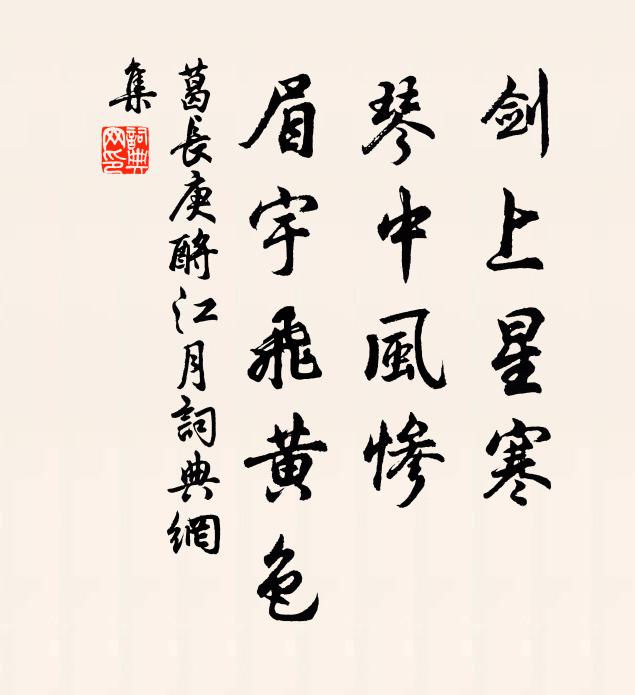 剑上星寒
琴中風慘
眉宇飛黃色
葛長庚酹江月詞典網
集
詞典
网印